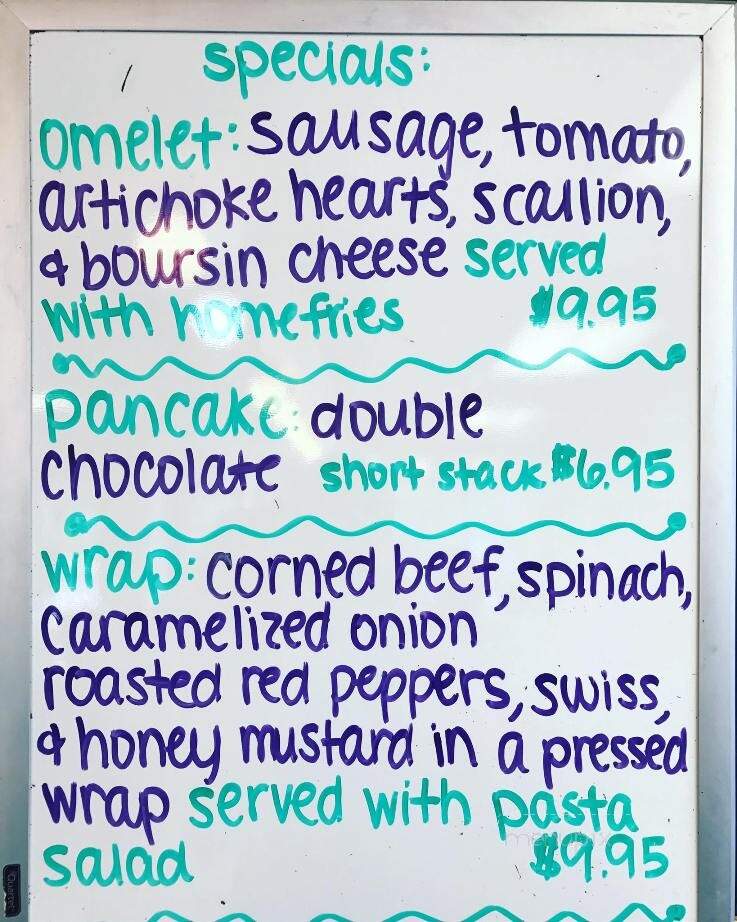 specials:
omelet: sausage, tomato,
artichoke hearts, scallion,
& boursin cheese served
with homefries $9.95
pancake: double
chocolate short stack $6.95
wrap: corned beef, spinach,
caramelized onion
roasted red peppers, swiss,
& honey mustard in a pressed
wrap served with pasta
salad $9.95
Quartet